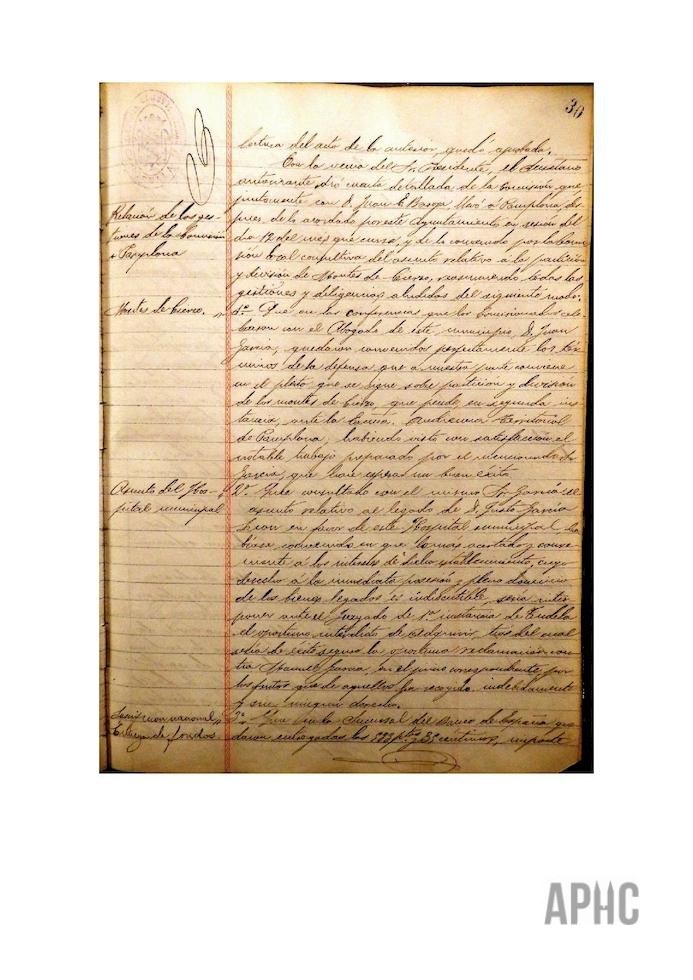 30
lectura del acta de la anterior quedó aprobada.
Con la venia del Sr. Presidente, el Secretario
autorizante dió cuenta detallada de la Comisión que,
juntamente con D. Juan llevó á Pamplona des-
Relación de las ges-
tiones de la Comisión
á Pamplona
pues de lo acordado por este Ayuntamiento en sesión del
dia 12 del mes que cursa, y de lo convenido por la Comi-
sión local consultiva del asunto relativo á la partición
y división de Montes de Cierzo, resumiendo todas las
gestiones y diligencias aludidas del siguiente modo.
Montes de Cierzo.
1º. Que en las conferencias que los Comisionados cele-
braron con el Abogado de este municipio, D. Juan
García, quedaron convenidos perfectamente los tér-
minos de la defensa que á nuestra parte conviene
en el pleito que se sigue sobre partición y división
de los montes de Cierzo, que pende, en segunda ins-
tancia, ante la Audiencia Territorial
de Pamplona, habiendo visto con satisfacción el
notable trabajo preparado por el mencionado Sr.
García, que hace esperar un buen éxito.
Asunto del Hos-
pital municipal
2º. Que consultado con el mismo Sr. García el
asunto relativo al legado de D. Justo García
en favor de este Hospital municipal, ha-
bíase convenido en que lo mas acertado y conve-
niente á los intereses de dicho establecimiento, cuyo
derecho á la inmediata posesión y pleno dominio
de los bienes legados es indiscutible, sería inter-
poner ante el Juzgado de 1ª instancia de Tudela
el oportuno interdicto de adquirir, tras del cual
sería de éxito seguro la oportuna reclamación con-
tra Manuel García, en el juicio correspondiente, por
los frutos que de aquellos ha recogido indebidamente
y sin ningun derecho.
nacional,
Entrega de fondos
3º. Que en la Sucursal del Banco de España que-
daron entregadas las ptas y 35 centimos, importe
APHC